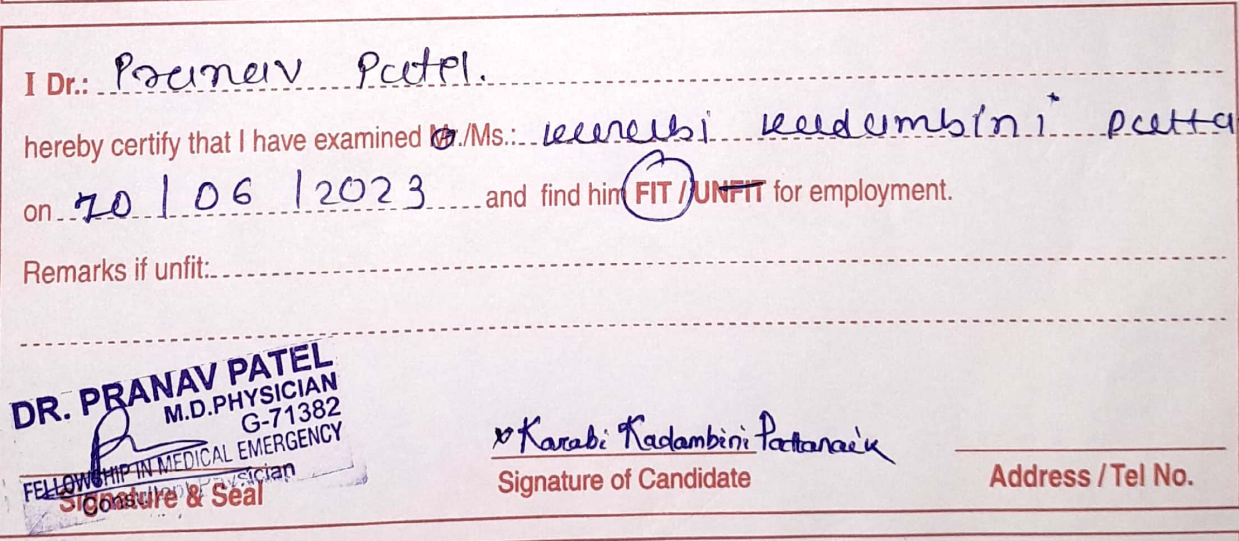 I Dr.: Pranav Patel.
hereby certify that I have examined Mr./Ms.: Karabi Kadambini Patta
on 20 / 06 / 2023 and find him FIT / UNFIT for employment.
Remarks if unfit:
DR. PRANAV PATEL
M.D.PHYSICIAN
G-71382
FELLOWSHIP IN MEDICAL EMERGENCY
Consultant Physician
Signature & Seal
Karabi Kadambini Pattanaik
Signature of Candidate
Address / Tel No.